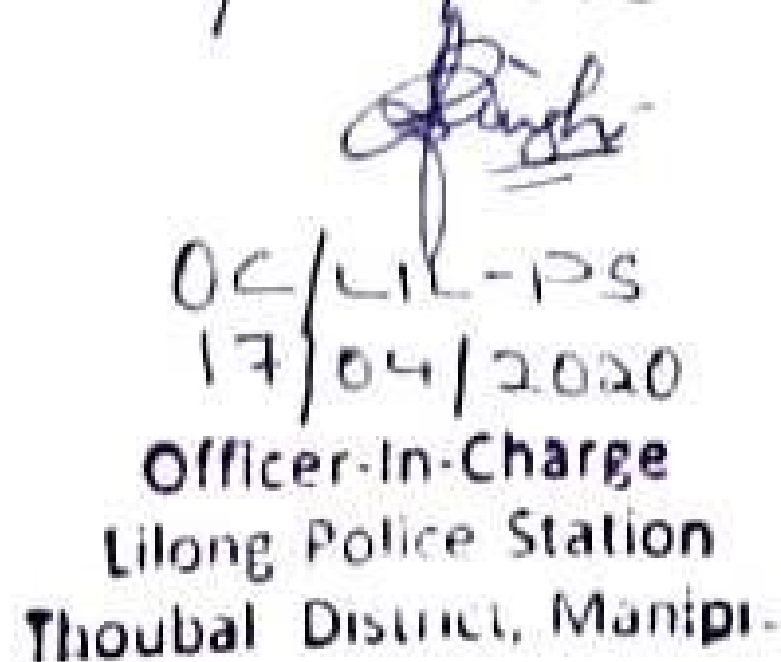 Singh
OC/LIL-PS
17/04/2020
Officer-In-Charge
Lilong Police Station
Thoubal District, Manipu